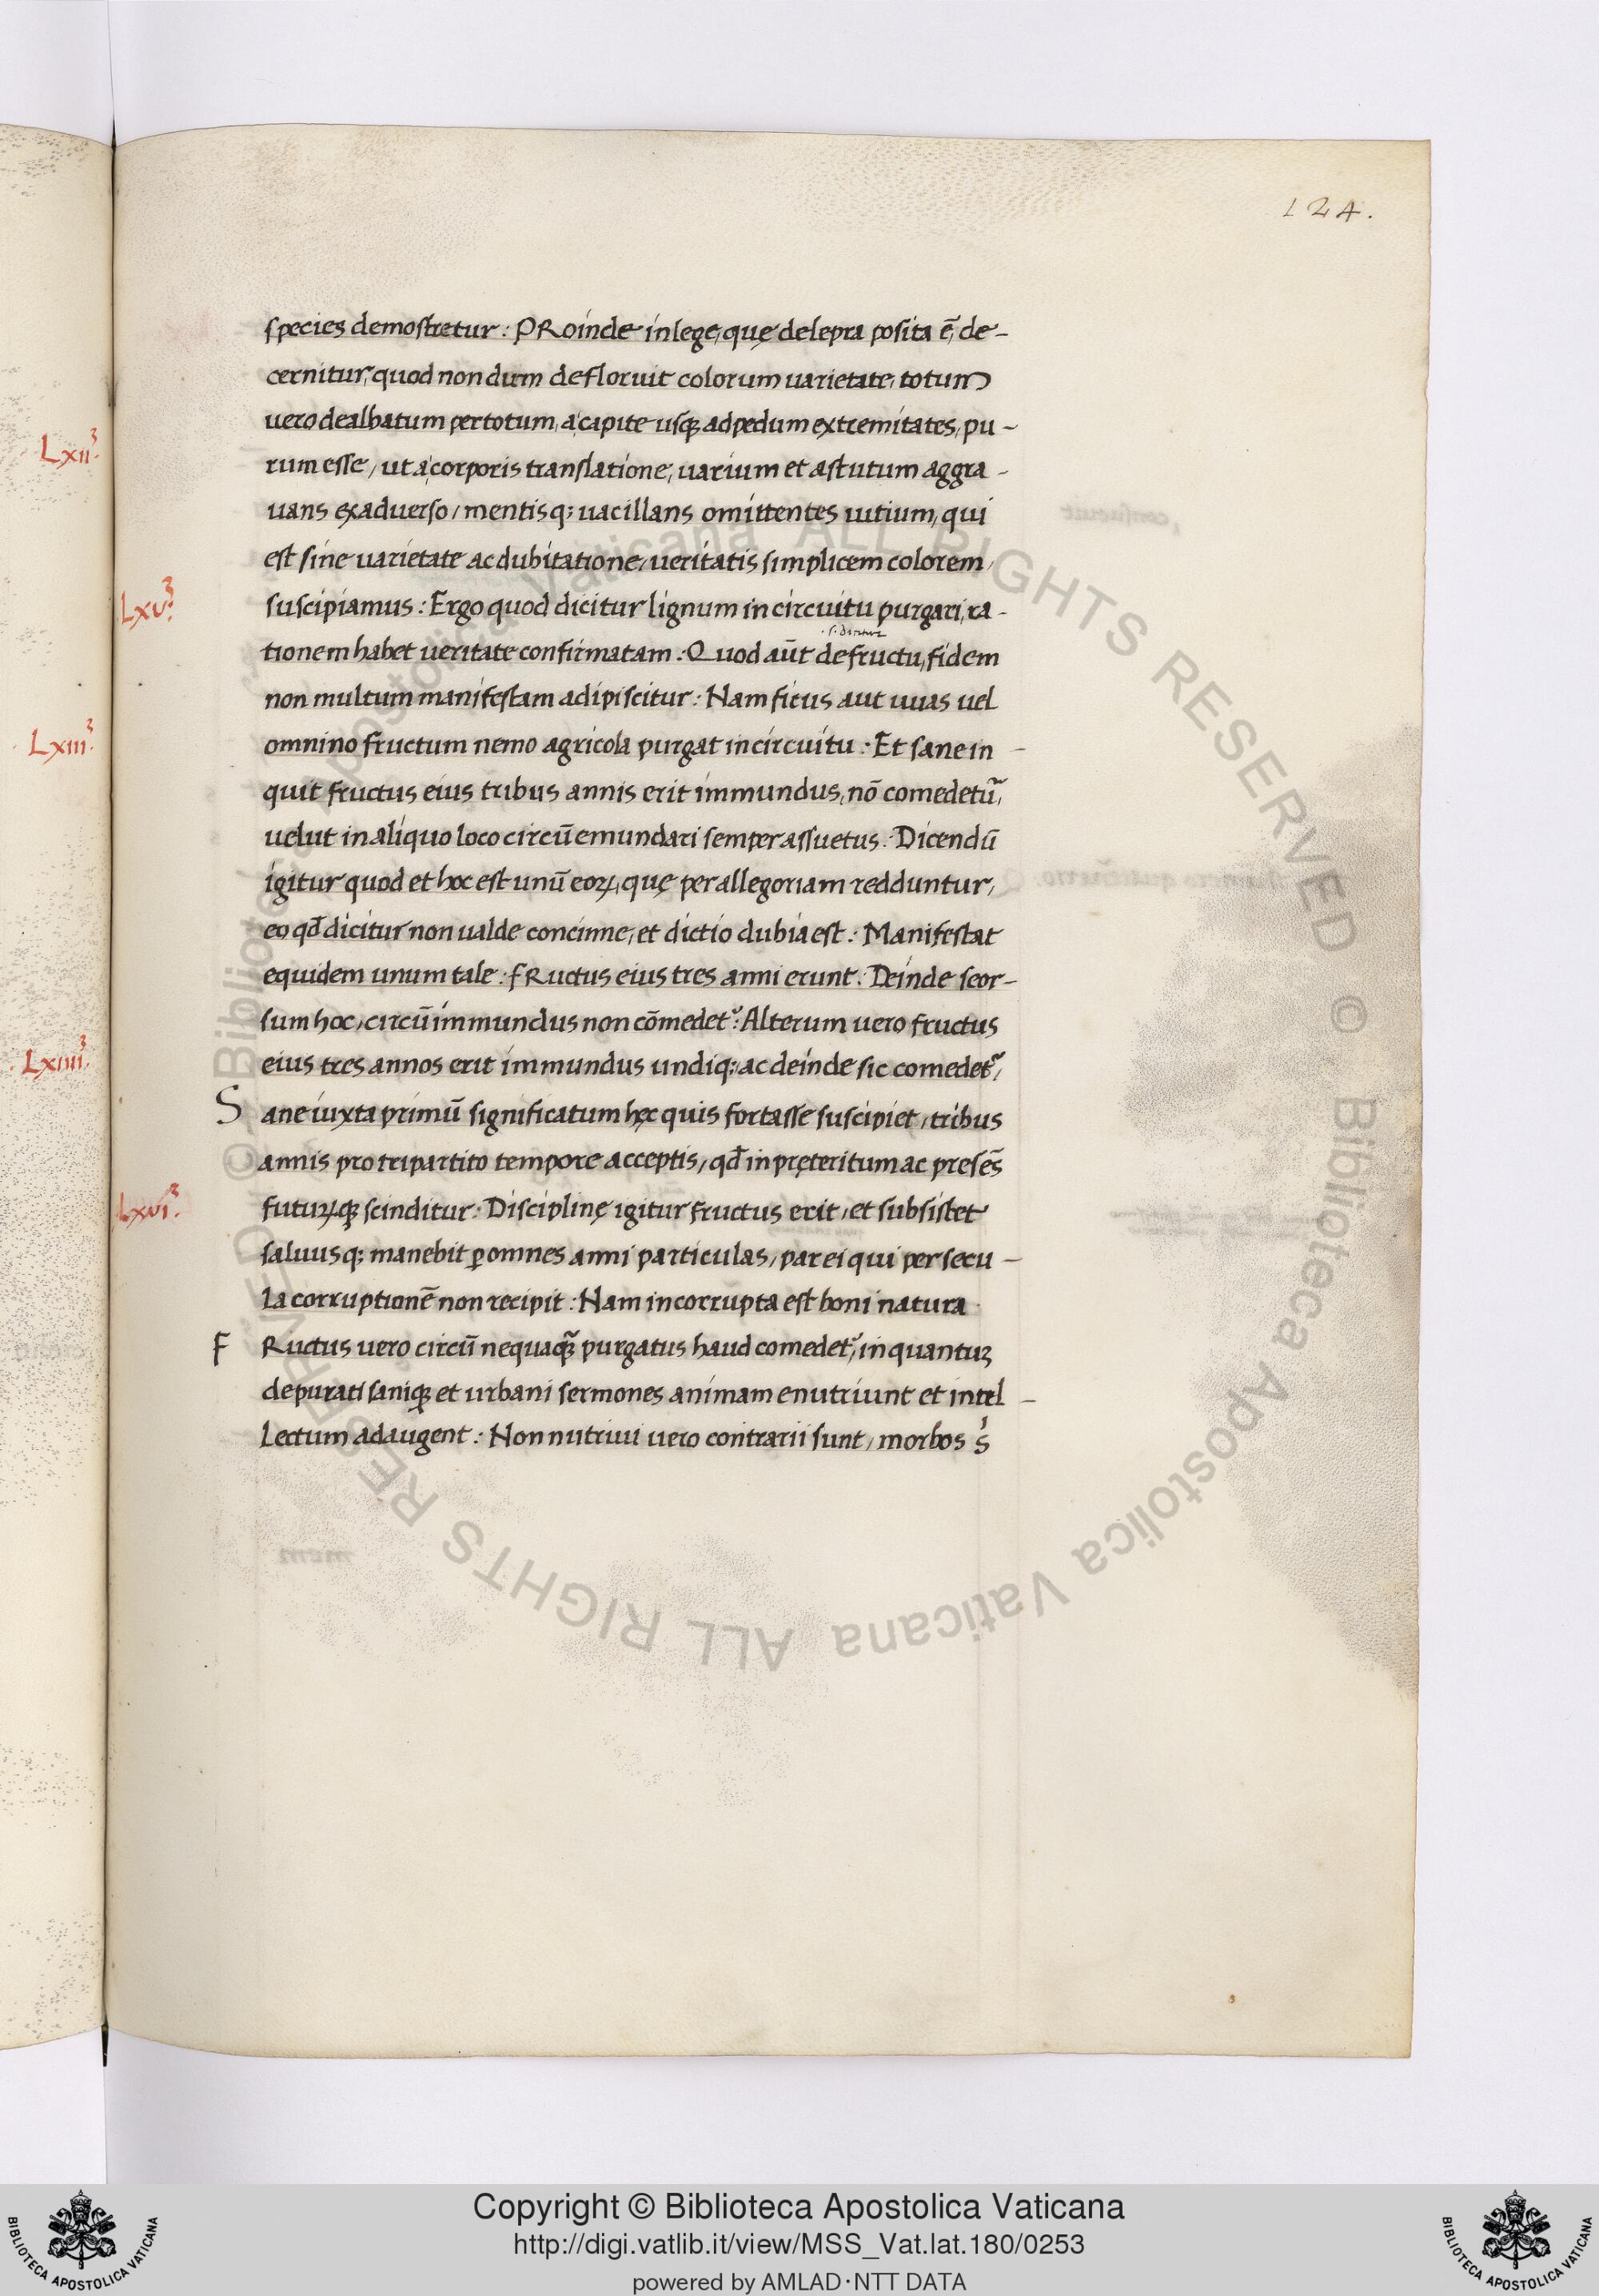 124.
species demostretur : PRoinde in lege, quę de lepra posita ē, de-
cernitur, quod nondum defloruit colorum uarietate, totum
uero dealbatum per totum, a capite usq; ad pedum extremitates, pu-
rum esse, ut a corporis translatione, uarium et astutum aggra-
uans ex aduerso, mentisq; uacillans omittentes uitium, qui
est sine uarietate ac dubitatione, ueritatis simplicem colorem,
suscipiamus : Ergo quod dicitur lignum in circuitu purgari, ra-
tionem habet ueritate confirmatam : Quod aūt de fructu, fidem
non multum manifestam adipiscitur : Nam ficus aut uuas uel
omnino fructum nemo agricola purgat in circuitu : Et sane in-
quit fructus eius tribus annis erit immundus, nō comedetur̃,
uelut in aliquo loco circū emundari semper assuetus : Dicendū
igitur quod et hoc est unū eoꝝ, quę per allegoriam redduntur,
eo qd̄ dicitur non ualde concinne, et dictio dubia est : Manifestat
equidem unum tale : fRuctus eius tres anni erunt : Deinde seor-
sum hoc, circū immundus non cōmedet᷑ : Alterum uero fructus
eius tres annos erit immundus undiq; ac deinde sic comedet᷑,
Sane iuxta primū significatum hęc quis fortasse suscipiet, tribus
annis pro tripartito tempore acceptis, qd̄ in pręteritum ac presēs
futuꝝq; scinditur : Disciplinę igitur fructus erit, et subsistet
saluusq; manebit ꝑ omnes anni particulas, par ei qui per secu-
la corruptionē non recipit : Nam incorrupta est boni natura
FRuctus uero circū nequaq̃ purgatus haud comedet᷑, in quantuz
depurati saniq; et urbani sermones animam enutriunt et intel-
lectum adaugent : Non nutriui uero contrarii sunt, morbos s᷑
Lxii
Lxv
Lxiii
Lxiiii
Lxvi
© Biblioteca Apostolica Vaticana ALL RIGHTS RESERVED © Biblioteca Apostolica Vaticana ALL RIGHTS RESERVED
Copyright © Biblioteca Apostolica Vaticana
http://digi.vatlib.it/view/MSS_Vat.lat.180/0253
powered by AMLAD·NTT DATA
BIBLIOTECA APOSTOLICA VATICANA
BIBLIOTECA APOSTOLICA VATICANA